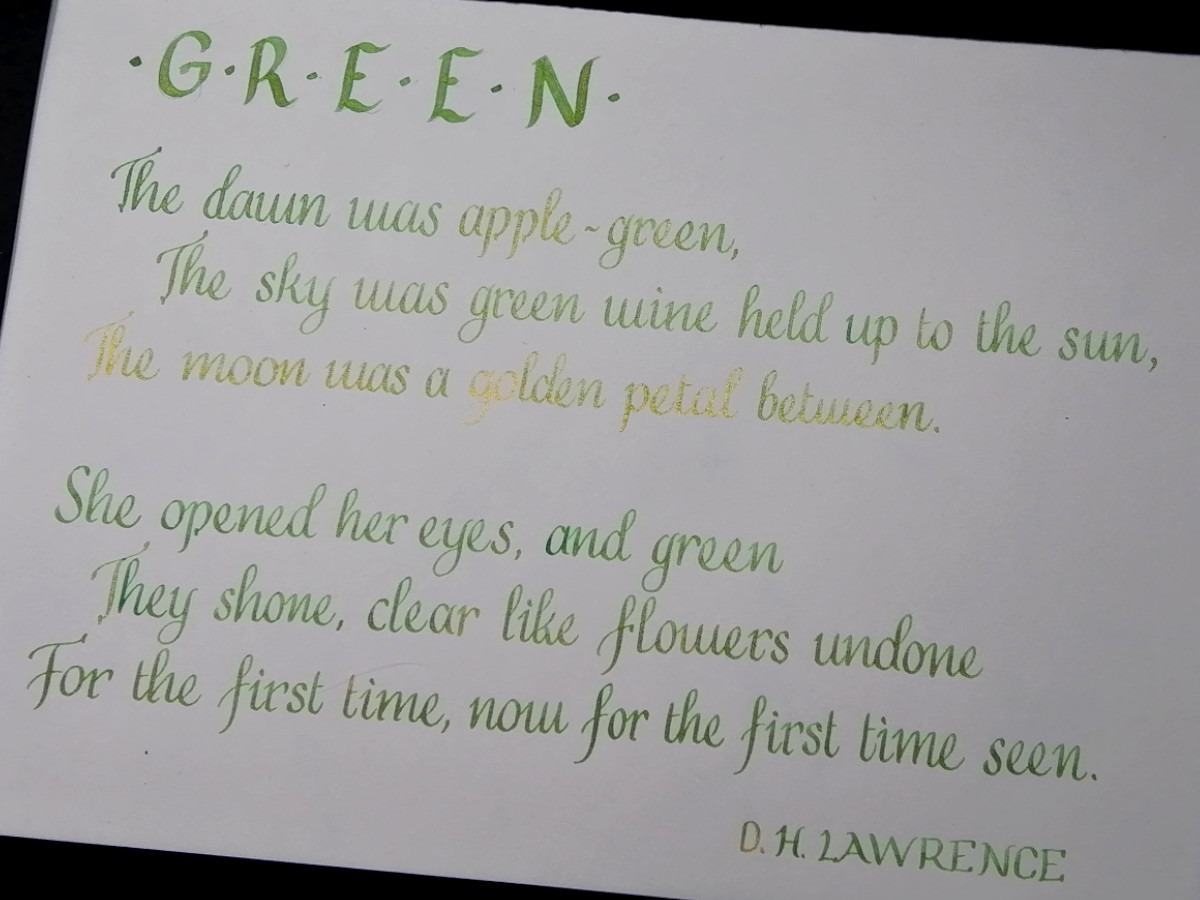 ·G·R·E·E·N·
The dawn was apple-green,
The sky was green wine held up to the sun,
The moon was a golden petal between.
She opened her eyes, and green
They shone, clear like flowers undone
For the first time, now for the first time seen.
D. H. LAWRENCE